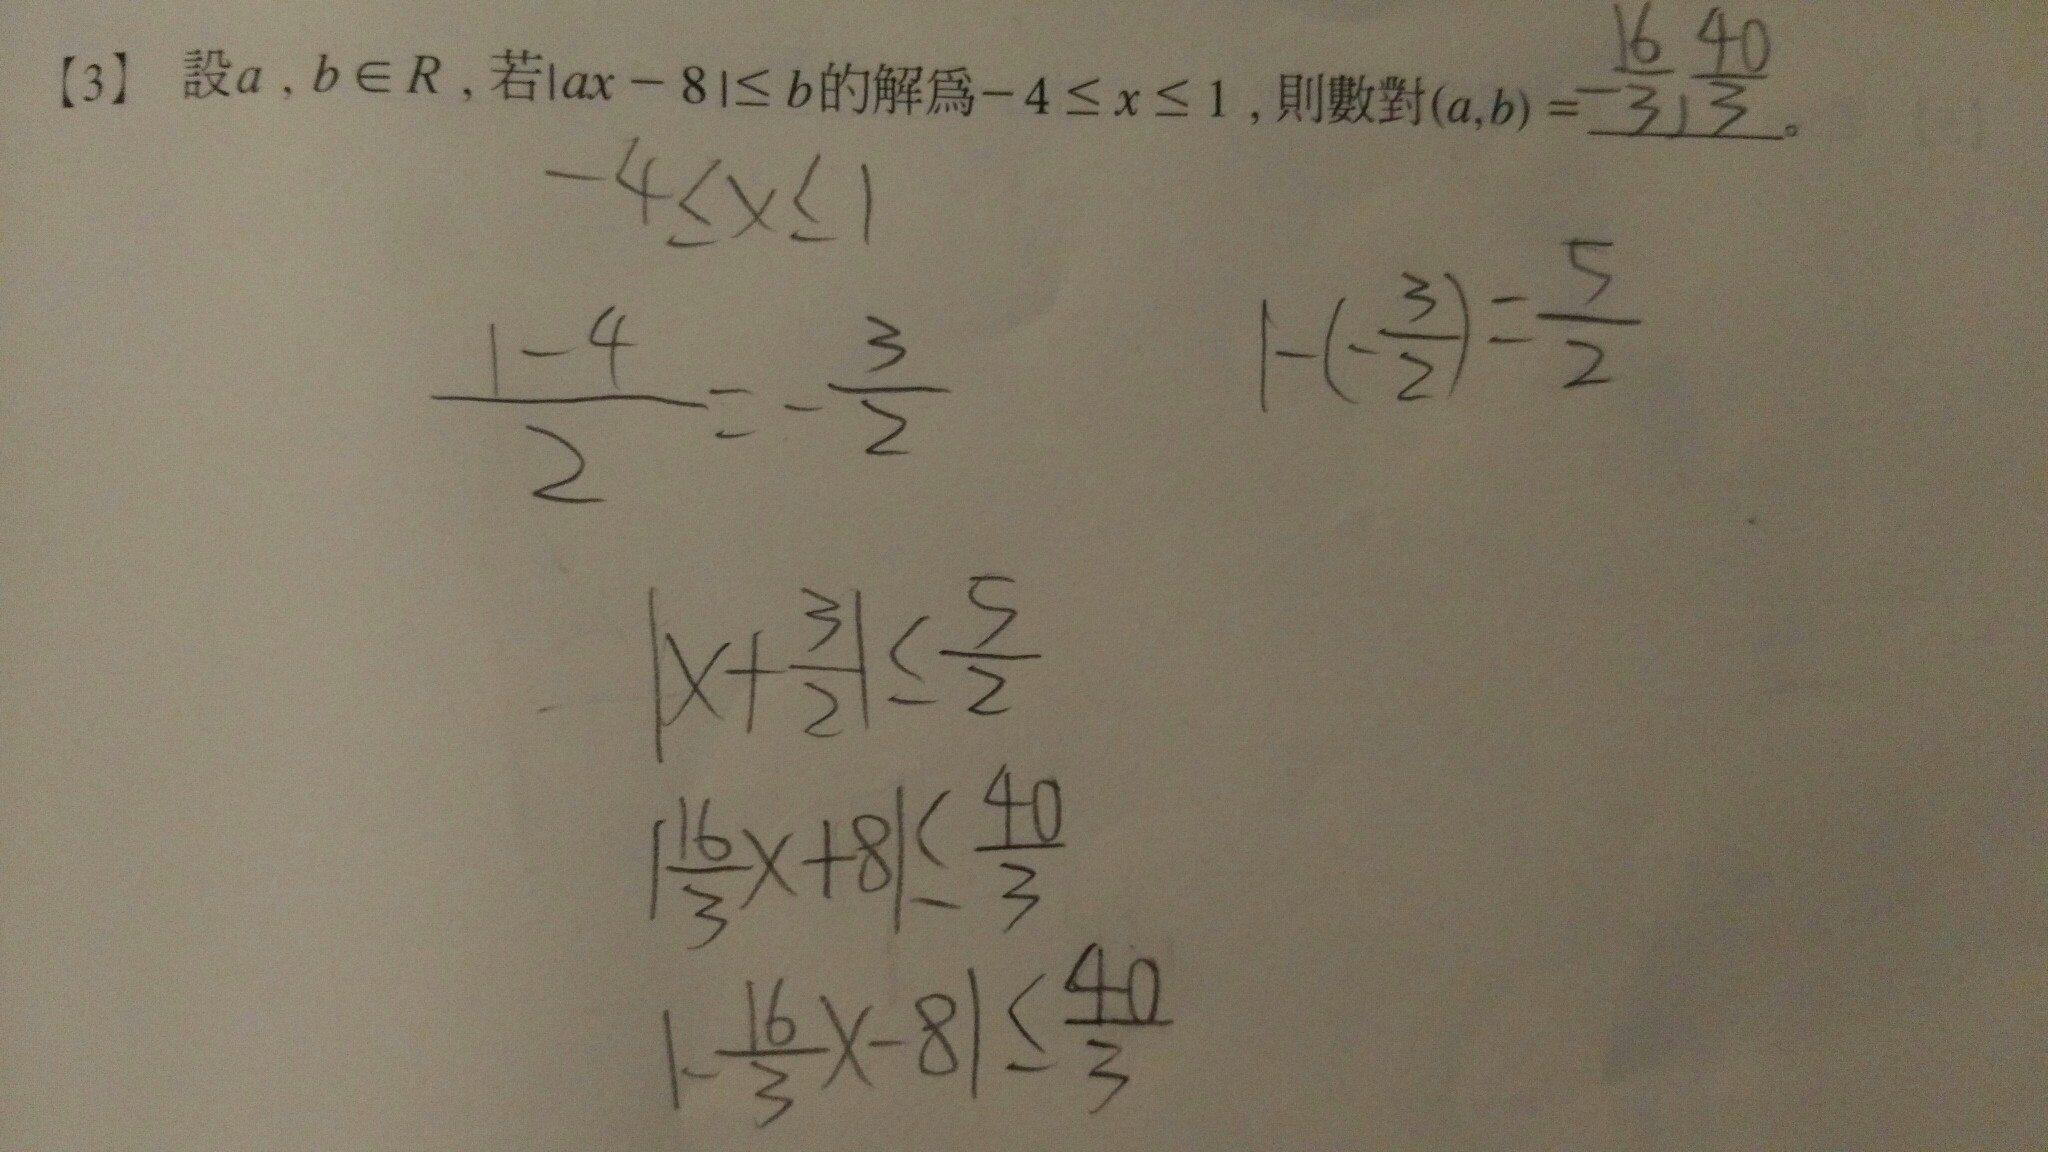 【3】 設a , b ∈ R , 若|ax − 8|≤ b的解為−4 ≤ x ≤ 1 , 則數對(a,b) = -16/3, 40/3 。
-4≤x≤1
(1-4)/2 = -3/2
1-(-3/2)=5/2
|x+3/2|≤5/2
|16/3x+8|≤40/3
|-16/3x-8|≤40/3